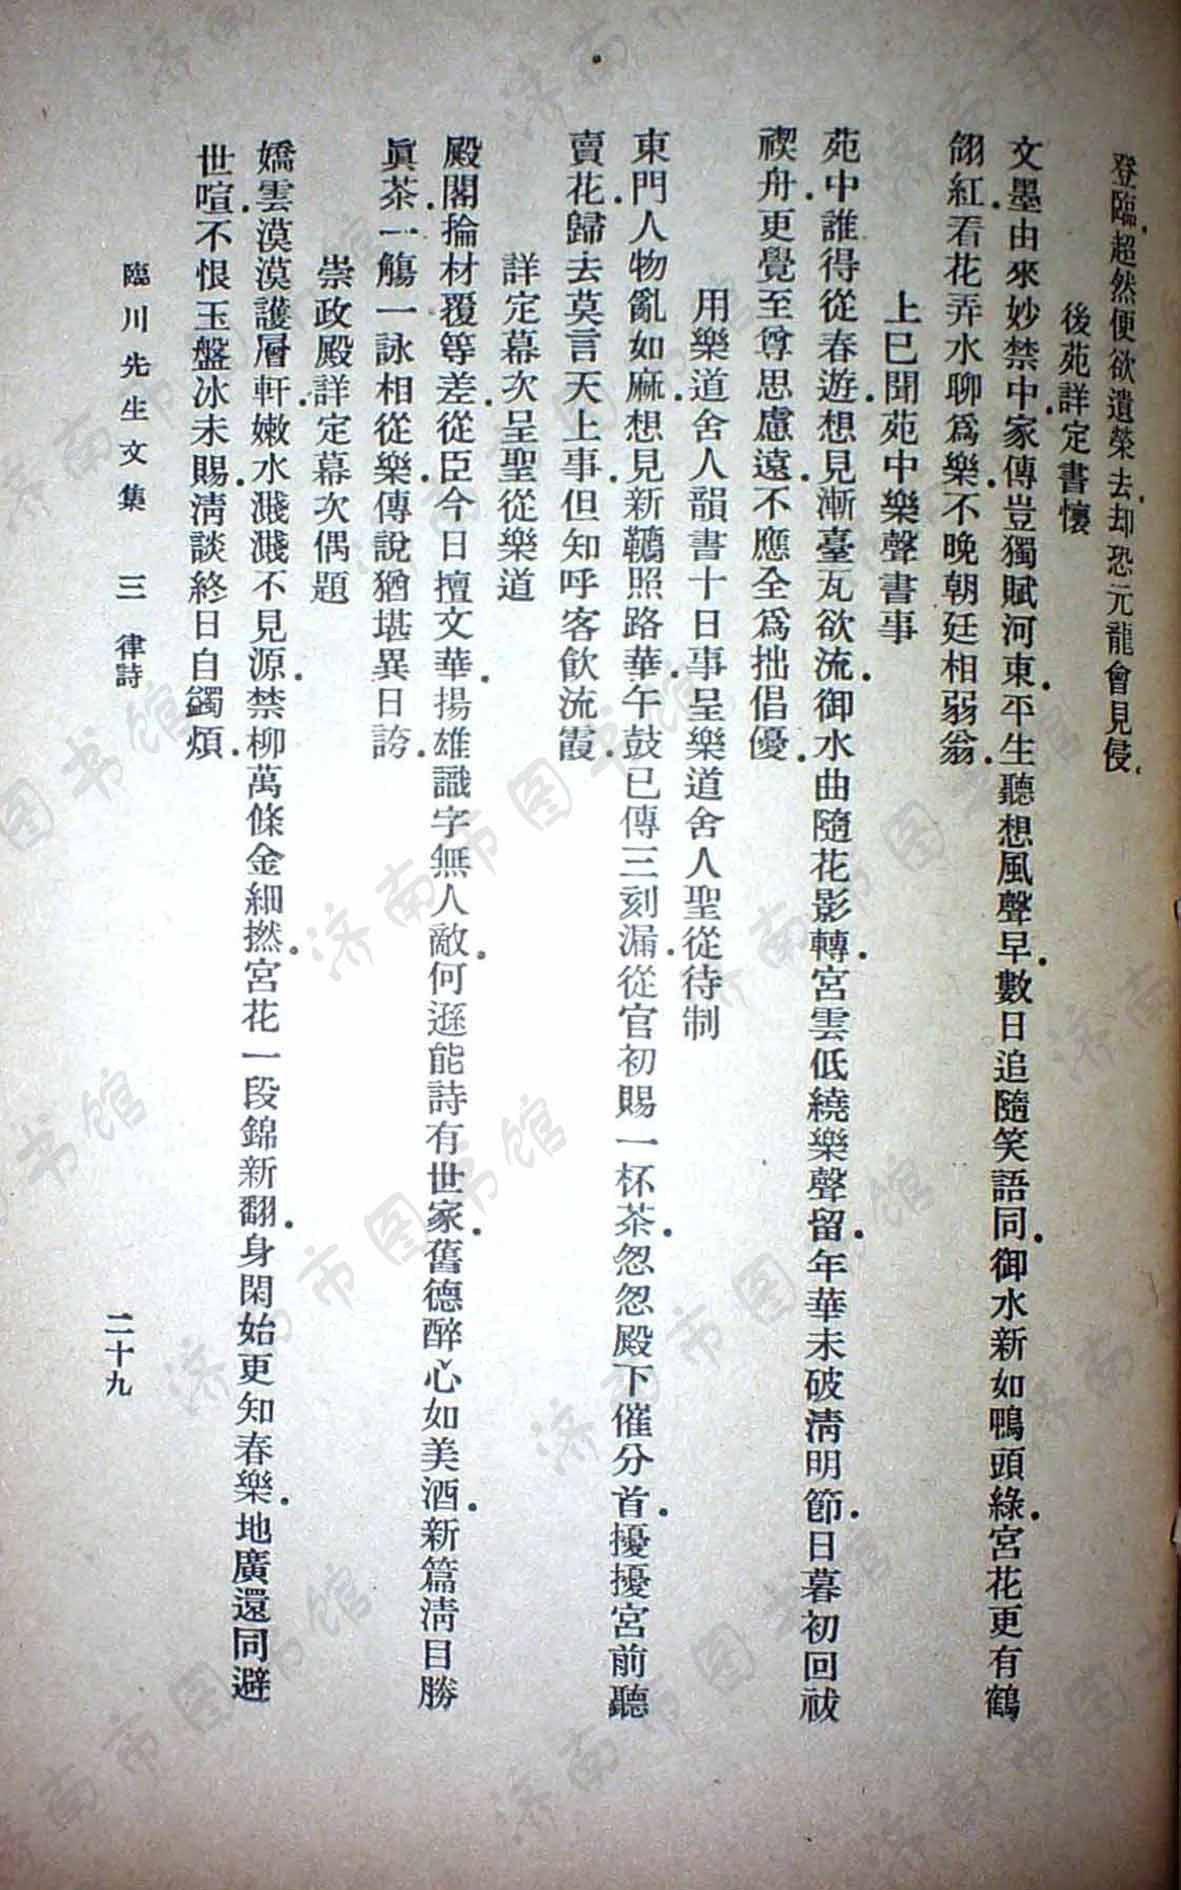 登臨超然便欲遺榮去却恐元龍會見侵
後苑詳定書懷
文墨由來妙禁中家傳豈獨賦河東平生聽想風聲早數日追隨笑語同御水新如鴨頭綠宮花更有鶴
翎紅看花弄水聊爲樂不晚朝廷相弱翁
上巳聞苑中樂聲書事
苑中誰得從春遊想見漸臺瓦欲流御水曲隨花影轉宮雲低繞樂聲留年華未破淸明節日暮初回祓
禊舟更覺至尊思慮遠不應全爲拙倡優
用樂道舍人韻書十日事呈樂道舍人聖從待制
東門人物亂如麻想見新韉照路華午鼓已傳三刻漏從官初賜一杯茶怱怱殿下催分首擾擾宮前聽
賣花歸去莫言天上事但知呼客飮流霞
詳定幕次呈聖從樂道
殿閣掄材覆等差從臣今日擅文華揚雄識字無人敵何遜能詩有世家舊德醉心如美酒新篇淸目勝
眞茶一觴一詠相從樂傳說猶堪異日誇
崇政殿詳定幕次偶題
嬌雲漠漠護層軒嫩水濺濺不見源禁柳萬條金細撚宮花一段錦新翻身閑始更知春樂地廣還同避
世喧不恨玉盤冰未賜淸談終日自蠲煩
臨川先生文集 三 律詩 二十九
济南市图书馆